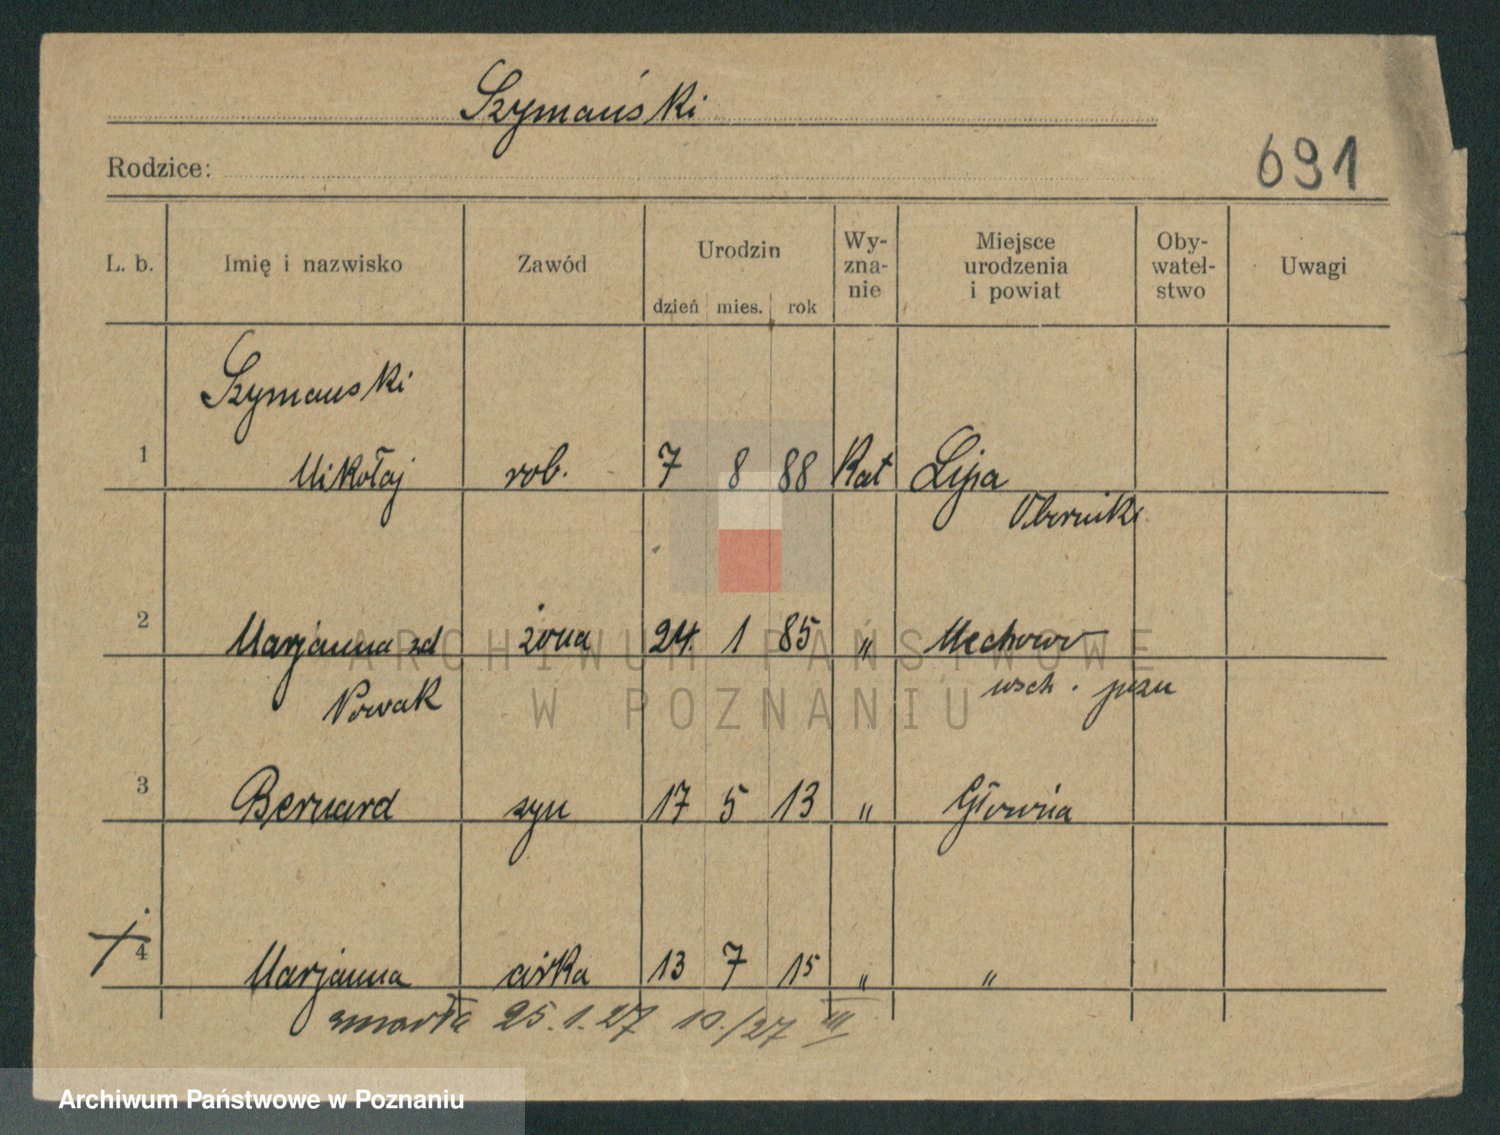 Szymański
Rodzice:
691
L. b. Imię i nazwisko Zawód Urodzin dzień mies. rok Wy-zna-nie Miejsce urodzenia i powiat Oby-watel-stwo Uwagi
Szymanski
1 Mikołaj rob. 7 8 88 Kat Lipa
Oborniki
2 Marjanna zd żona 24. 1 85 " Mechowo
Nowak wsch. pozn
3 Bernard syn 17 5 13 " Główna
4 Marjanna córka 13 7 15 " "
zmarła 25.1.27 10./27 III
ARCHIWUM PAŃSTWOWE
W POZNANIU
Archiwum Państwowe w Poznaniu